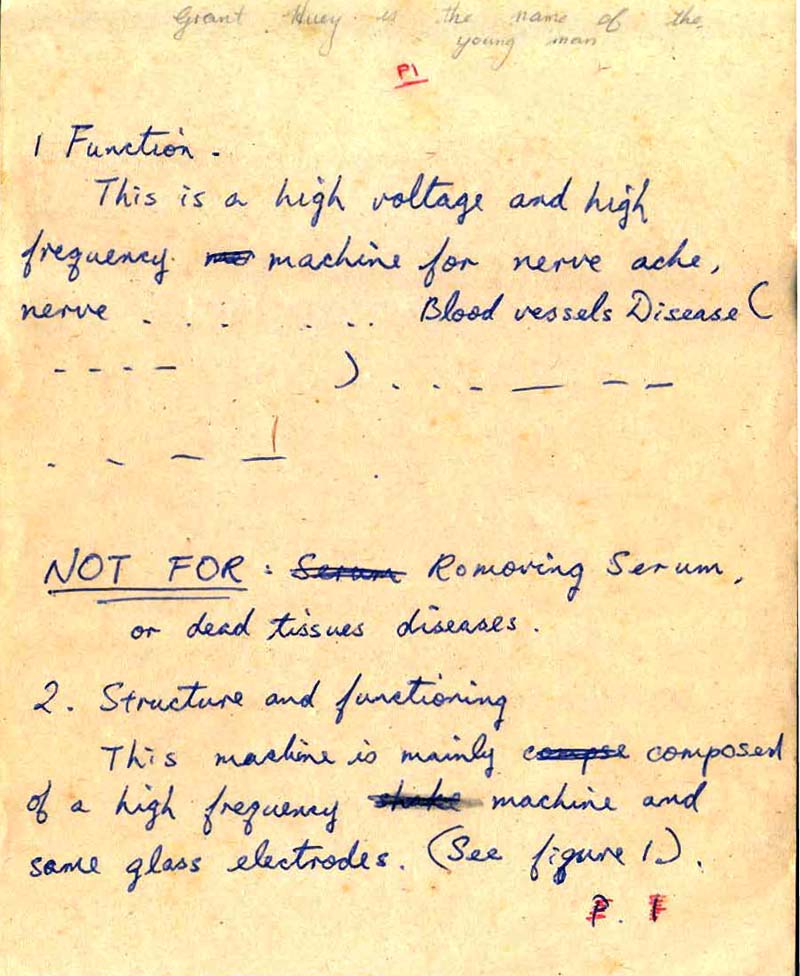 Grant Huey is the name of the
young man
P1
1 Function.
This is a high voltage and high
frequency machine for nerve ache,
nerve . . . . . . Blood vessels Disease (
- - - - ) . . - — - -
. - - —
NOT FOR : Serum Romoving Serum,
or dead tissues diseases.
2. Structure and functioning
This machine is mainly compse composed
of a high frequency shake machine and
some glass electrodes. (See figure 1.).
P. 1